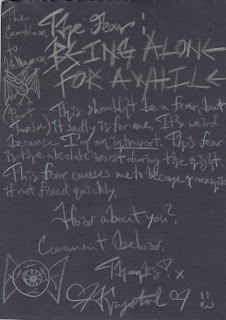 The
Countdown
to
Halloween
Part
Twelve
The Fear:
BEING ALONE
FOR A WHILE
This shouldn't be a fear, but
it sadly is for me. It's weird
because I'm an introvert. This fear
is the absolute worst during the night.
This fear causes me to become paranoid
if not fixed quickly.
How about you?
Comment below.
Thanks! x
Krystal